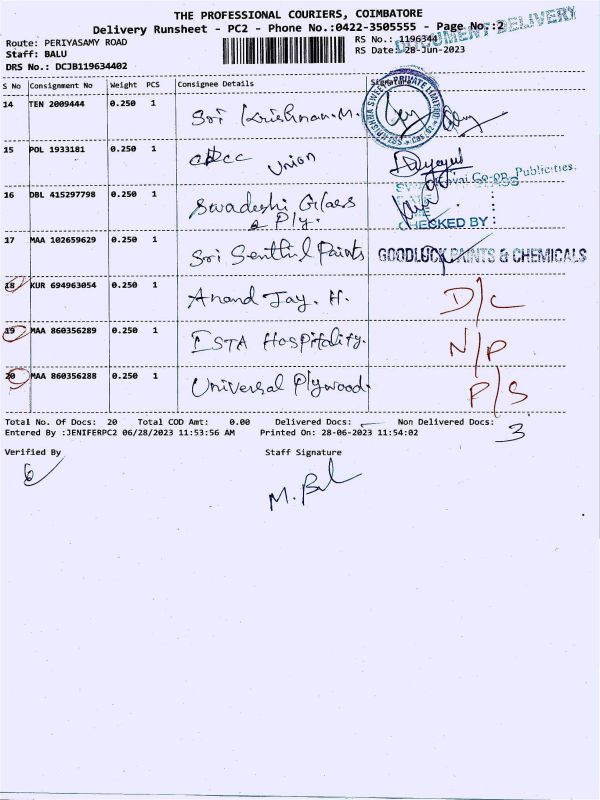 THE PROFESSIONAL COURIERS, COIMBATORE
Delivery Runsheet - PC2 - Phone No.:0422-3505555 - Page No.:2
DOCUMENT DELIVERY
Route: PERIYASAMY ROAD
RS No.: 1196344
Staff: BALU
RS Date: 28-Jun-2023
DRS No.: DCJB119634402
S No Consignment No Weight PCS Consignee Details Signature
14 TEN 2009444 0.250 1 Sri Krishnan.M.
15 POL 1933181 0.250 1 Union
16 DBL 415297798 0.250 1 Swadeshi Glass
& Ply.
Kovai Co-op. Publicities.
CHECKED BY :
17 MAA 102659629 0.250 1 Sri Senthil Paints GOODLUCK PAINTS & CHEMICALS
18 KUR 694963054 0.250 1 Anand Jay. H. D/C
19 MAA 860356289 0.250 1 ESTA Hospitality. N/P
20 MAA 860356288 0.250 1 Universal Plywood. P/S
Total No. Of Docs: 20 Total COD Amt: 0.00 Delivered Docs: Non Delivered Docs: 3
Entered By :JENIFERPC2 06/28/2023 11:53:56 AM Printed On: 28-06-2023 11:54:02
Verified By Staff Signature